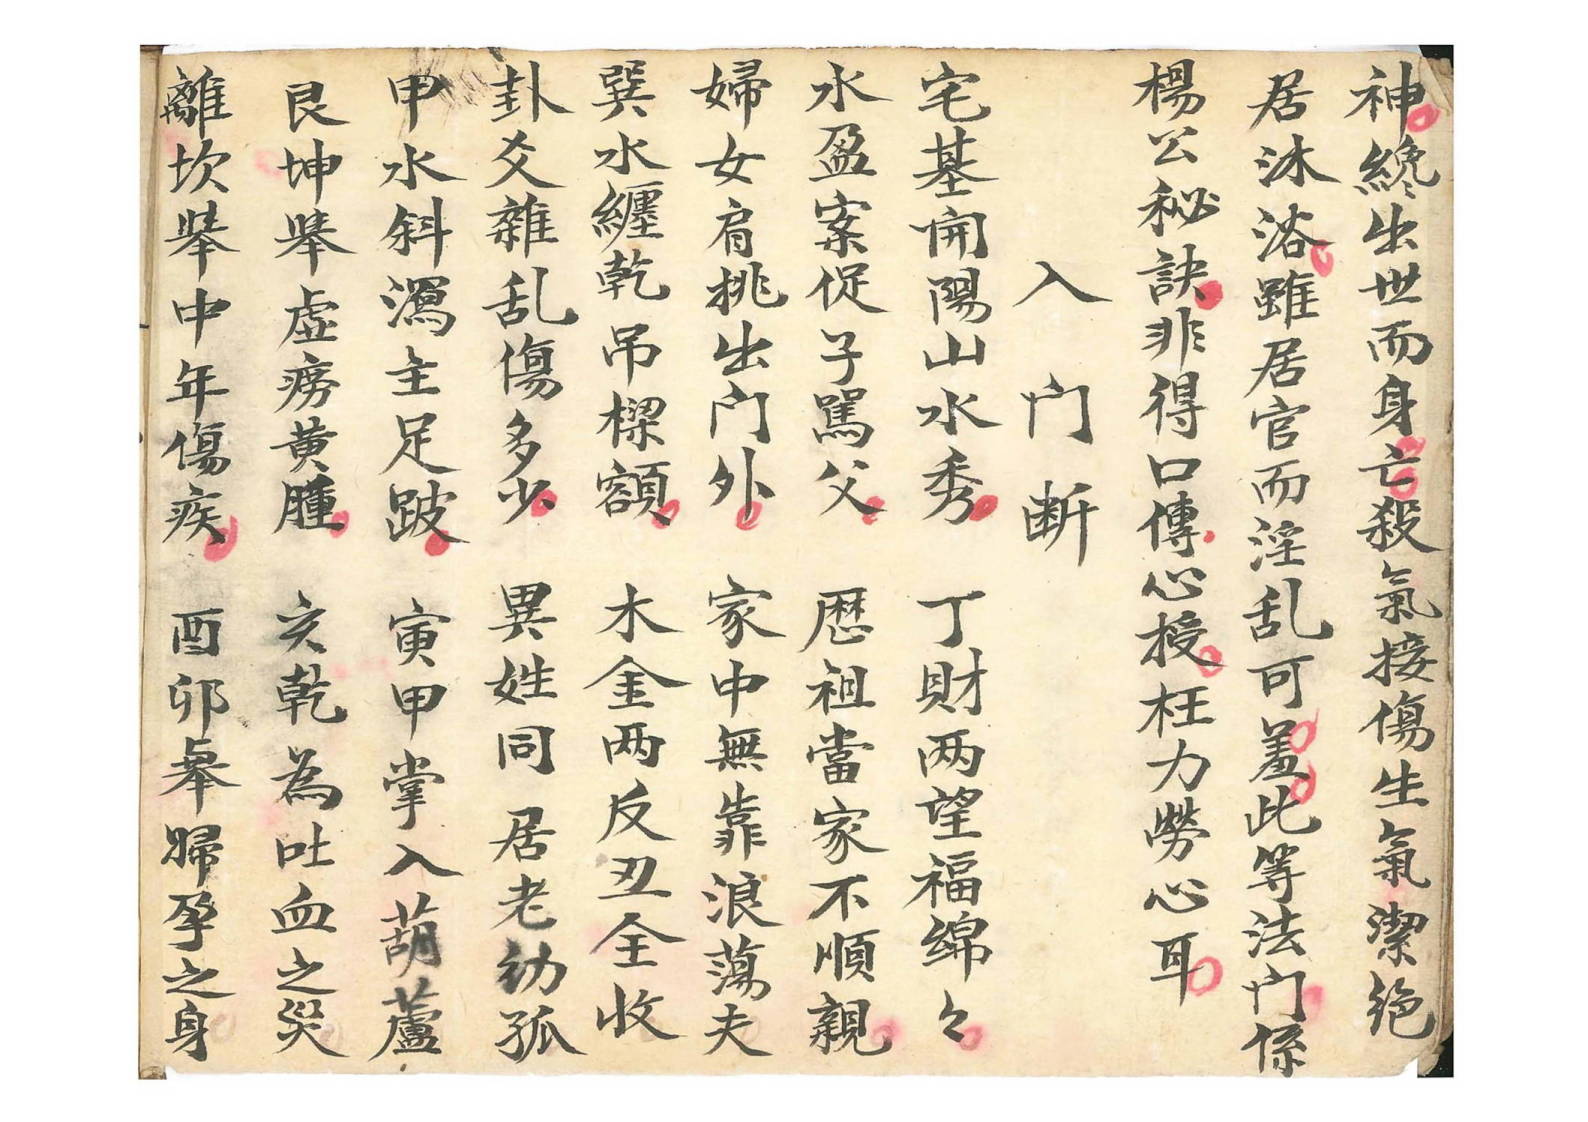 神纔出世而身亡殺氣接傷生氣潔絕
居沐浴雖居官而淫乱可羞此等法门係
楊公秘訣非得口傳心授枉力勞心耳
入门断
宅基開陽山水秀 丁財两望福綿々
水盈案促子罵父 歴祖當家不順親
婦女肩挑出门外 家中無靠浪蕩夫
巽水纏乾吊樑額 木金两反刃全收
卦爻雜乱傷多少 異姓同居老幼孤
甲水斜瀉主足跛 寅甲掌入葫蘆
艮坤擧虛痨黄腫 亥乾為吐血之災
離坎擧中年傷疾 酉卯擧婦孕之身